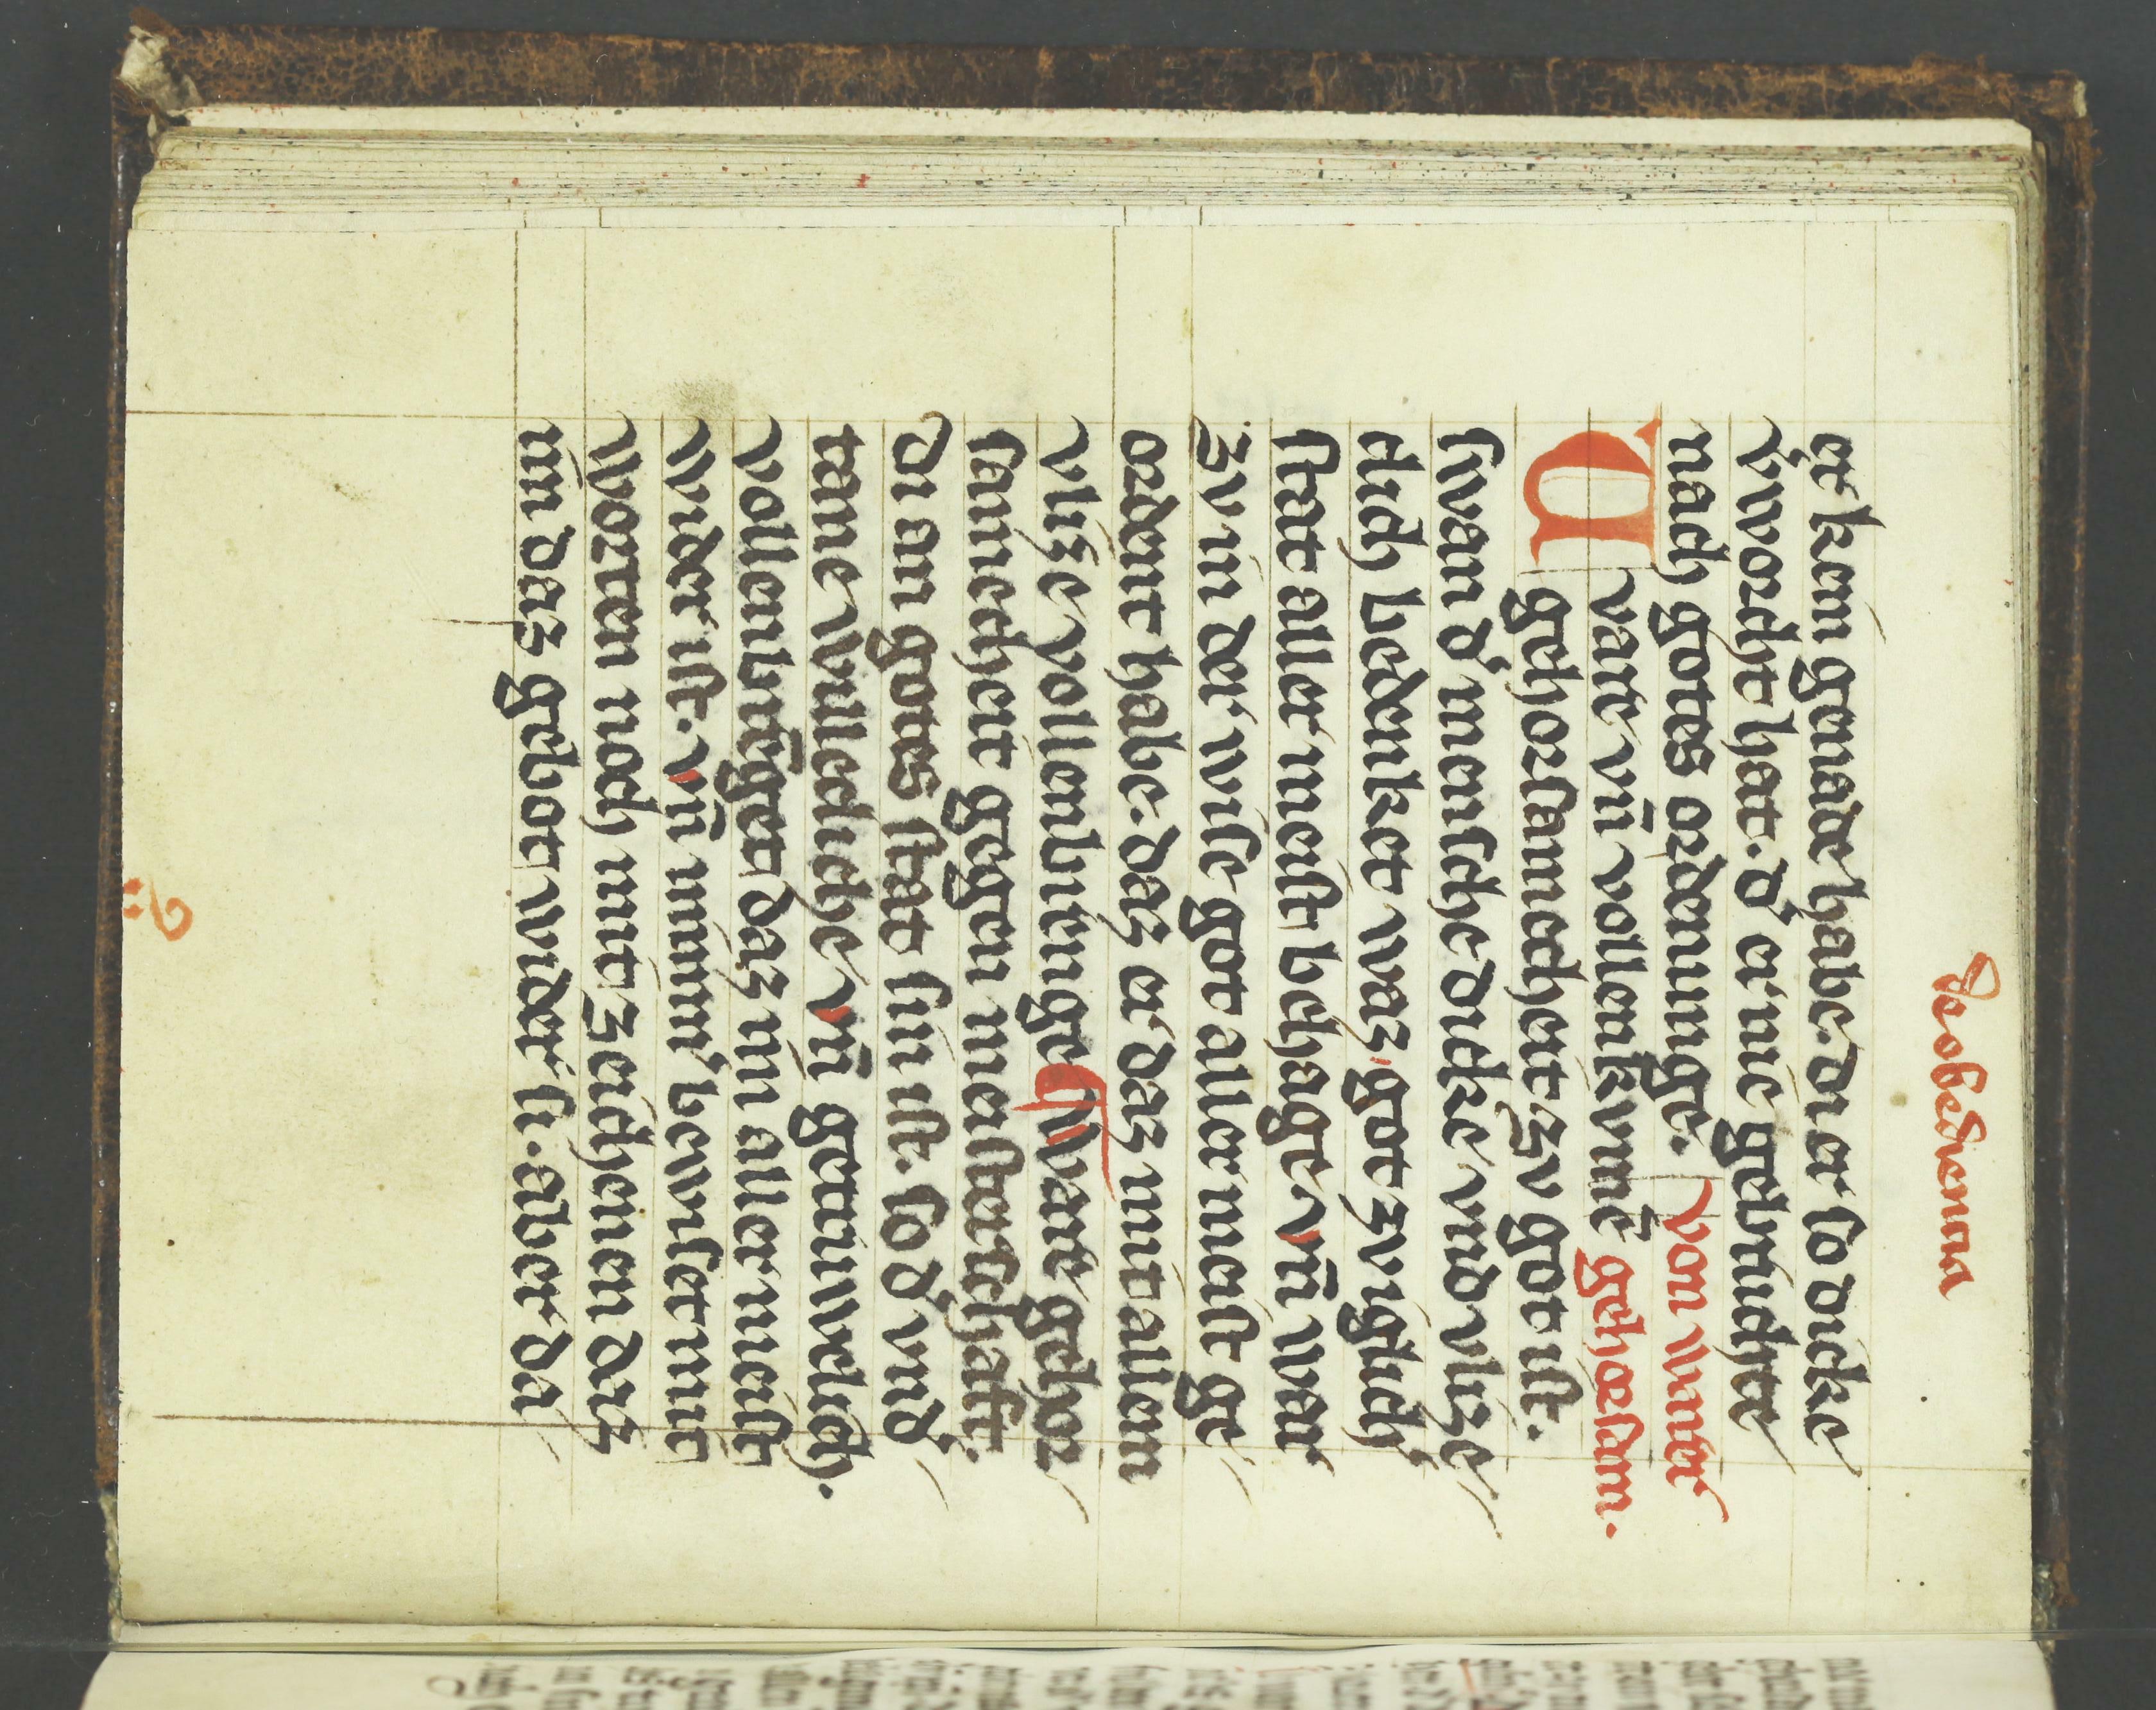 de obediencia
er kein genade habe. di er so dicke
v̓wορcht hat. d᾽ er nie gebrúchte
nach gotes ordenunge. von win̄er
Uare vn̄ vollenkvmē gehorsam.
gehorsamecheit zv got ist.
swan d᾽ mensche dicke vnd vlize
clich bedenket waz got zvigliċh
stat aller meist behage vn̄ war
zv in der wise got aller meist ge
ordent habe. daz er daz mit allem
vlize vollenbrenge ware gehor
samecheit gegen meisterschaft.
di an gotes stat sin ist. so d᾽ vnd
tane willecliche vn̄ getruwelich.
vollenbrēget daz im aller meist
wider ist. vn̄ nimm᾽ bewiset mit
worten noch mit zeichenen daz
im daz gebot wider si. aber da